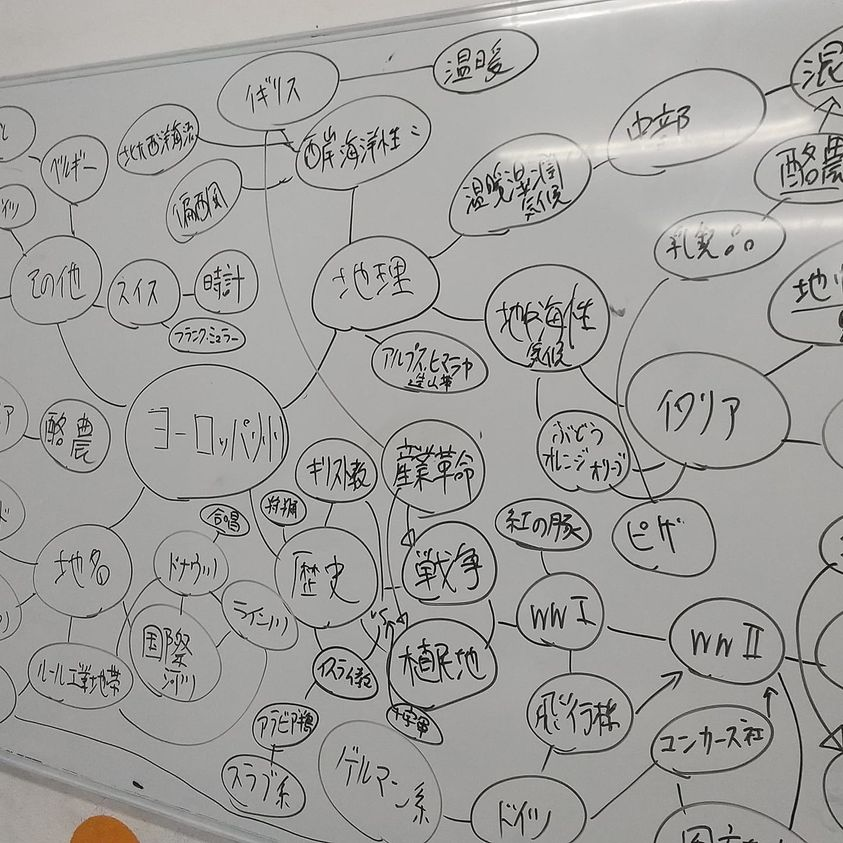 イギリス
温暖
混
中部
酪農
ベルギー
北大西洋海流
西岸海洋性
偏西風
温暖湿潤
気候
乳製品
その他
スイス
時計
フランク・ミュラー
地理
地中海性
気候
アルプス・ヒマラヤ
造山帯
イタリア
酪農
ヨーロッパ州
キリスト教
産業革命
ぶどう
オレンジ オリーブ
ピザ
合唱
紅の豚
地名
ドナウ川
歴史
戦争
ライン川
国際
河川
WWⅠ
WWⅡ
ルール工業地帯
イスラム教
植民地
十字軍
飛行機
アラビア語
ユンカース社
スラブ系
ゲルマン系
ドイツ